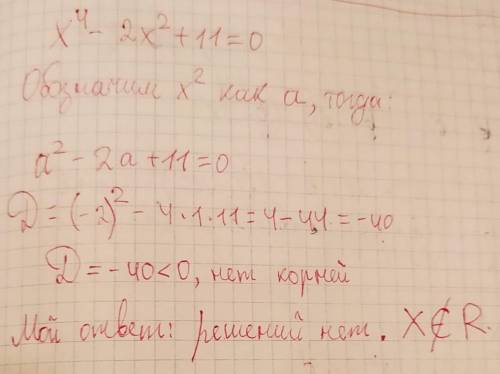 x⁴ - 2x² + 11 = 0
Обозначим x² как a, тогда:
a² - 2a + 11 = 0
D = (-2)² - 4·1·11 = 4 - 44 = -40
D = -40 < 0, нет корней
Мой ответ: решений нет. X ∉ R.